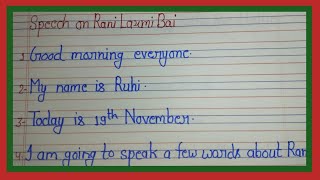 Speech on Rani Laxmi Bai
1. Good morning everyone.
2- My name is Ruhi.
3- Today is 19th November.
4 I am going to speak a few words about Ran